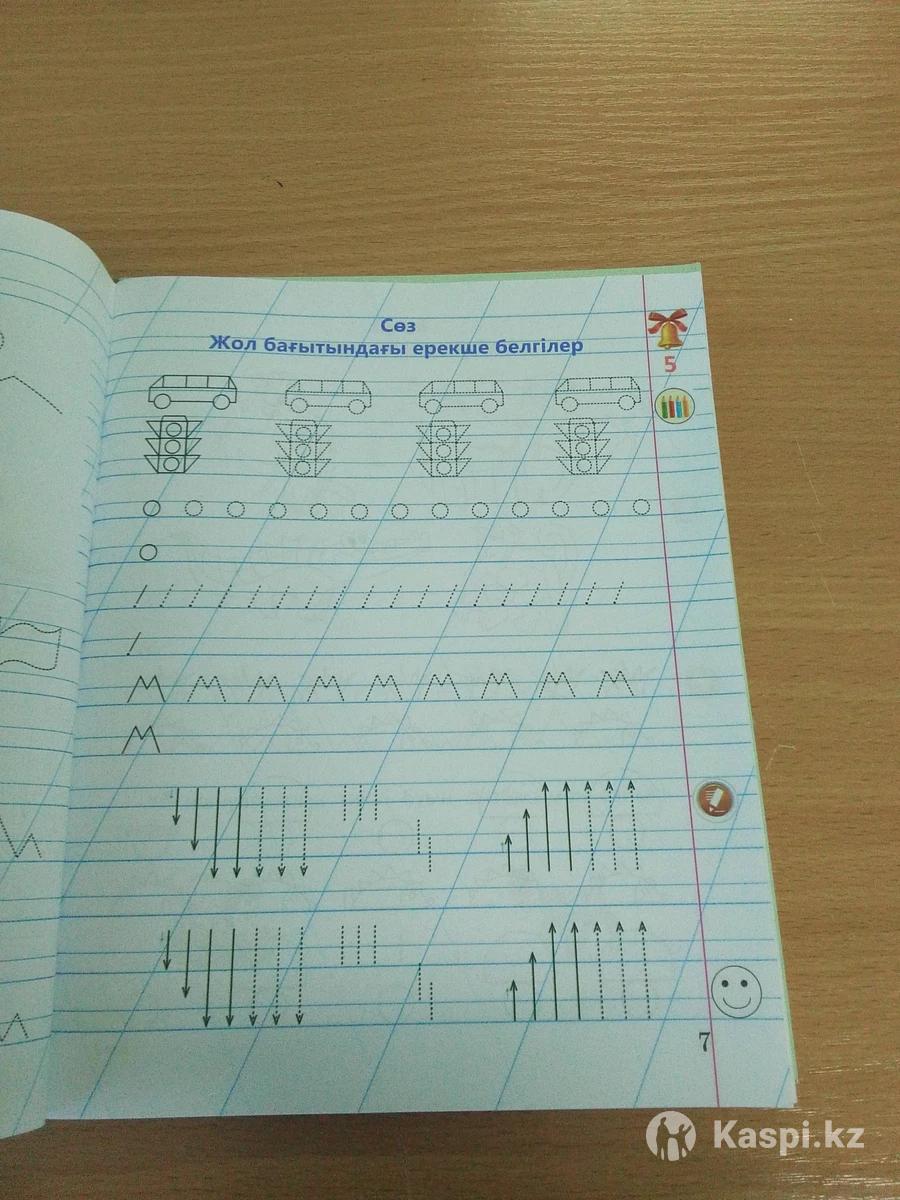 Сөз
Жол бағытындағы ерекше белгілер
5
7
Kaspi.kz